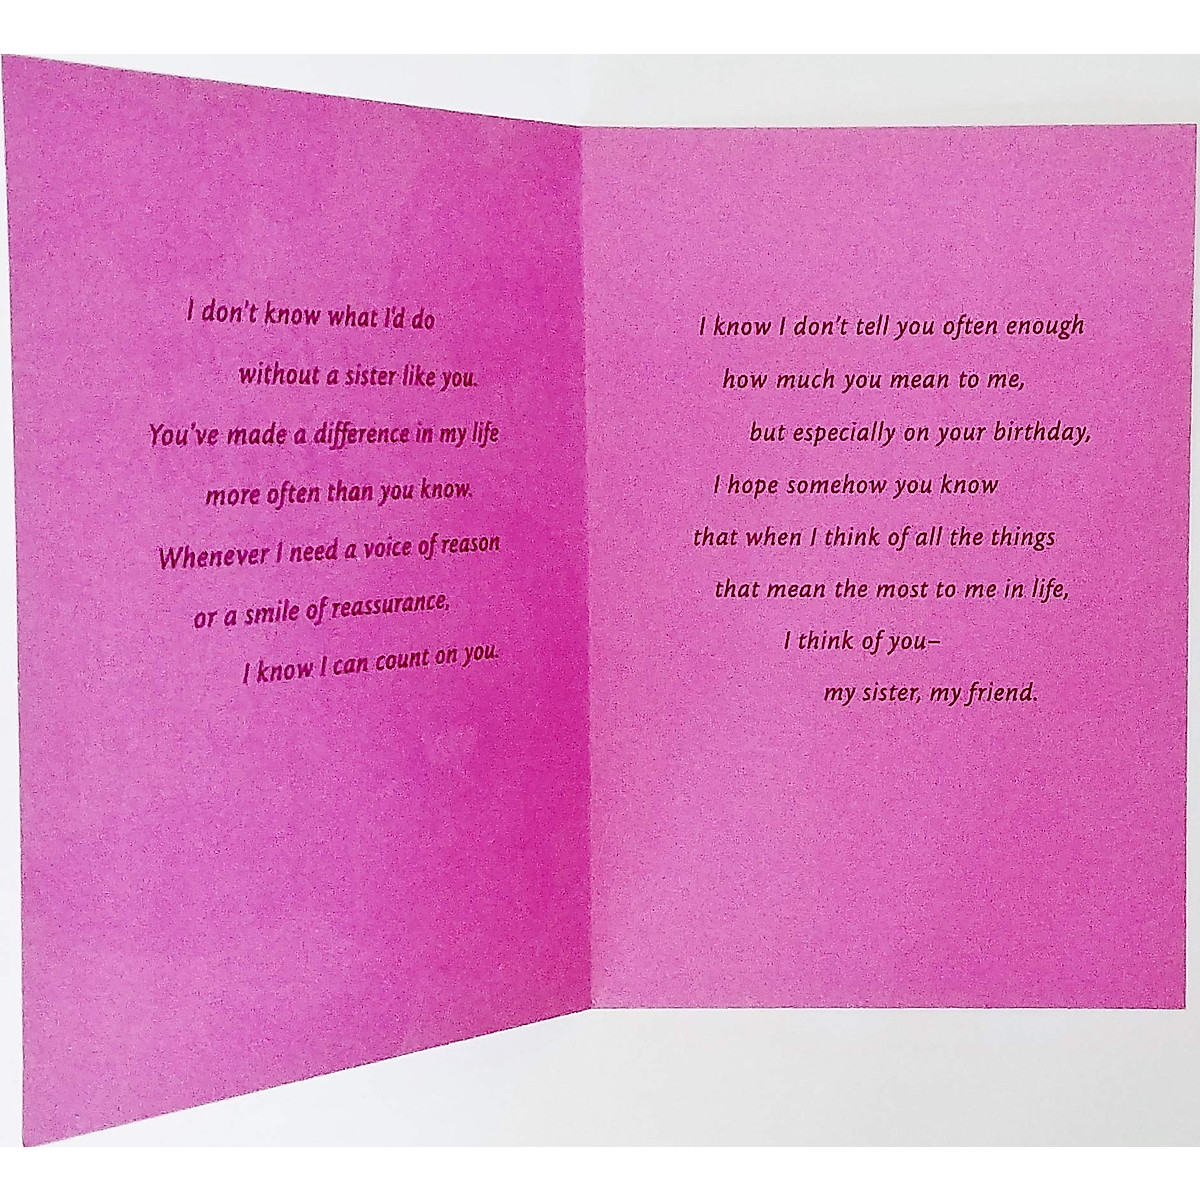 I don't know what I'd do
without a sister like you.
You've made a difference in my life
more often than you know.
Whenever I need a voice of reason
or a smile of reassurance,
I know I can count on you.
I know I don't tell you often enough
how much you mean to me,
but especially on your birthday,
I hope somehow you know
that when I think of all the things
that mean the most to me in life,
I think of you–
my sister, my friend.